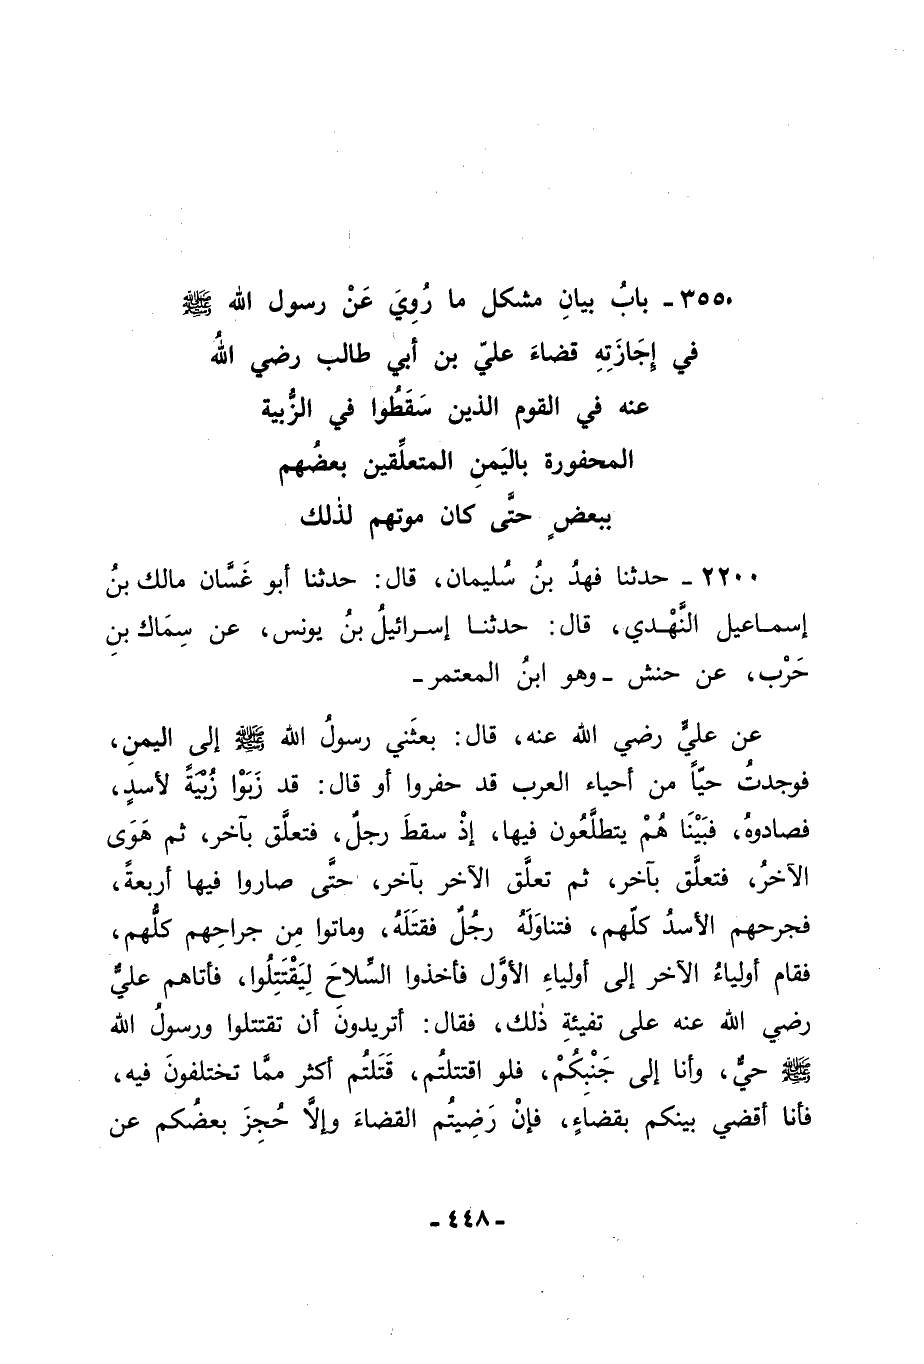 ٣٥٥ـ بابُ بيانِ مشكل ما رُوِيَ عَنْ رسول الله ﷺ
في إِجَازَتِهِ قضاءَ عليّ بن أبي طالب رضي اللهُ
عنه في القوم الذين سَقَطُوا في الزُّبية
المحفورة باليَمنِ المتعلِّقين بعضُهم
ببعضٍ حتَّى كان موتهم لذٰلك
٢٢٠٠ ـ حدثنا فهدُ بنُ سُليمان، قال: حدثنا أبو غَسَّان مالك بنُ
إسْماعيل النَّهْدي، قال: حدثنا إسرائيلُ بنُ يونس، عن سِمَاك بنِ
حَرْب، عن حنش ـ وهو ابنُ المعتمر ـ
عن عليٍّ رضي الله عنه، قال: بعثَني رسولُ الله ﷺ إلى اليمنِ،
فوجدتُ حيّاً من أحياء العرب قد حفروا أو قال: قد زَبَوْا زُبْيَةً لأسدٍ،
فصادوهُ، فبَيْنَا هُمْ يتطلَّعُون فيها، إذْ سقطَ رجلٌ، فتعلَّق بآخر، ثم هَوَى
الآخرُ، فتعلَّق بآخر، ثم تعلَّق الآخر بآخر، حتَّى صاروا فيها أربعةً،
فجرحهم الأسدُ كلّهم، فتناوَلَهُ رجُلٌ فقتَلَهُ، وماتوا مِن جراحِهم كلُّهم،
فقام أولياءُ الآخر إلى أولياءِ الأوَّل فأخذوا السِّلاحَ لِيَقْتَتِلُوا، فأتاهم عليٌّ
رضي الله عنه على تفيئةِ ذٰلك، فقال: أتريدونَ أن تقتتلوا ورسولُ الله
ﷺ حيٌّ، وأنا إلى جَنْبِكُمْ، فلو اقتتلتُم، قَتَلتُم أكثر ممَّا تختلفونَ فيه،
فأنا أقضي بينكم بقضاءٍ، فإنْ رَضِيتُم القضاءَ وإلَّا حُجِزَ بعضُكم عن
ـ ٤٤٨ ـ